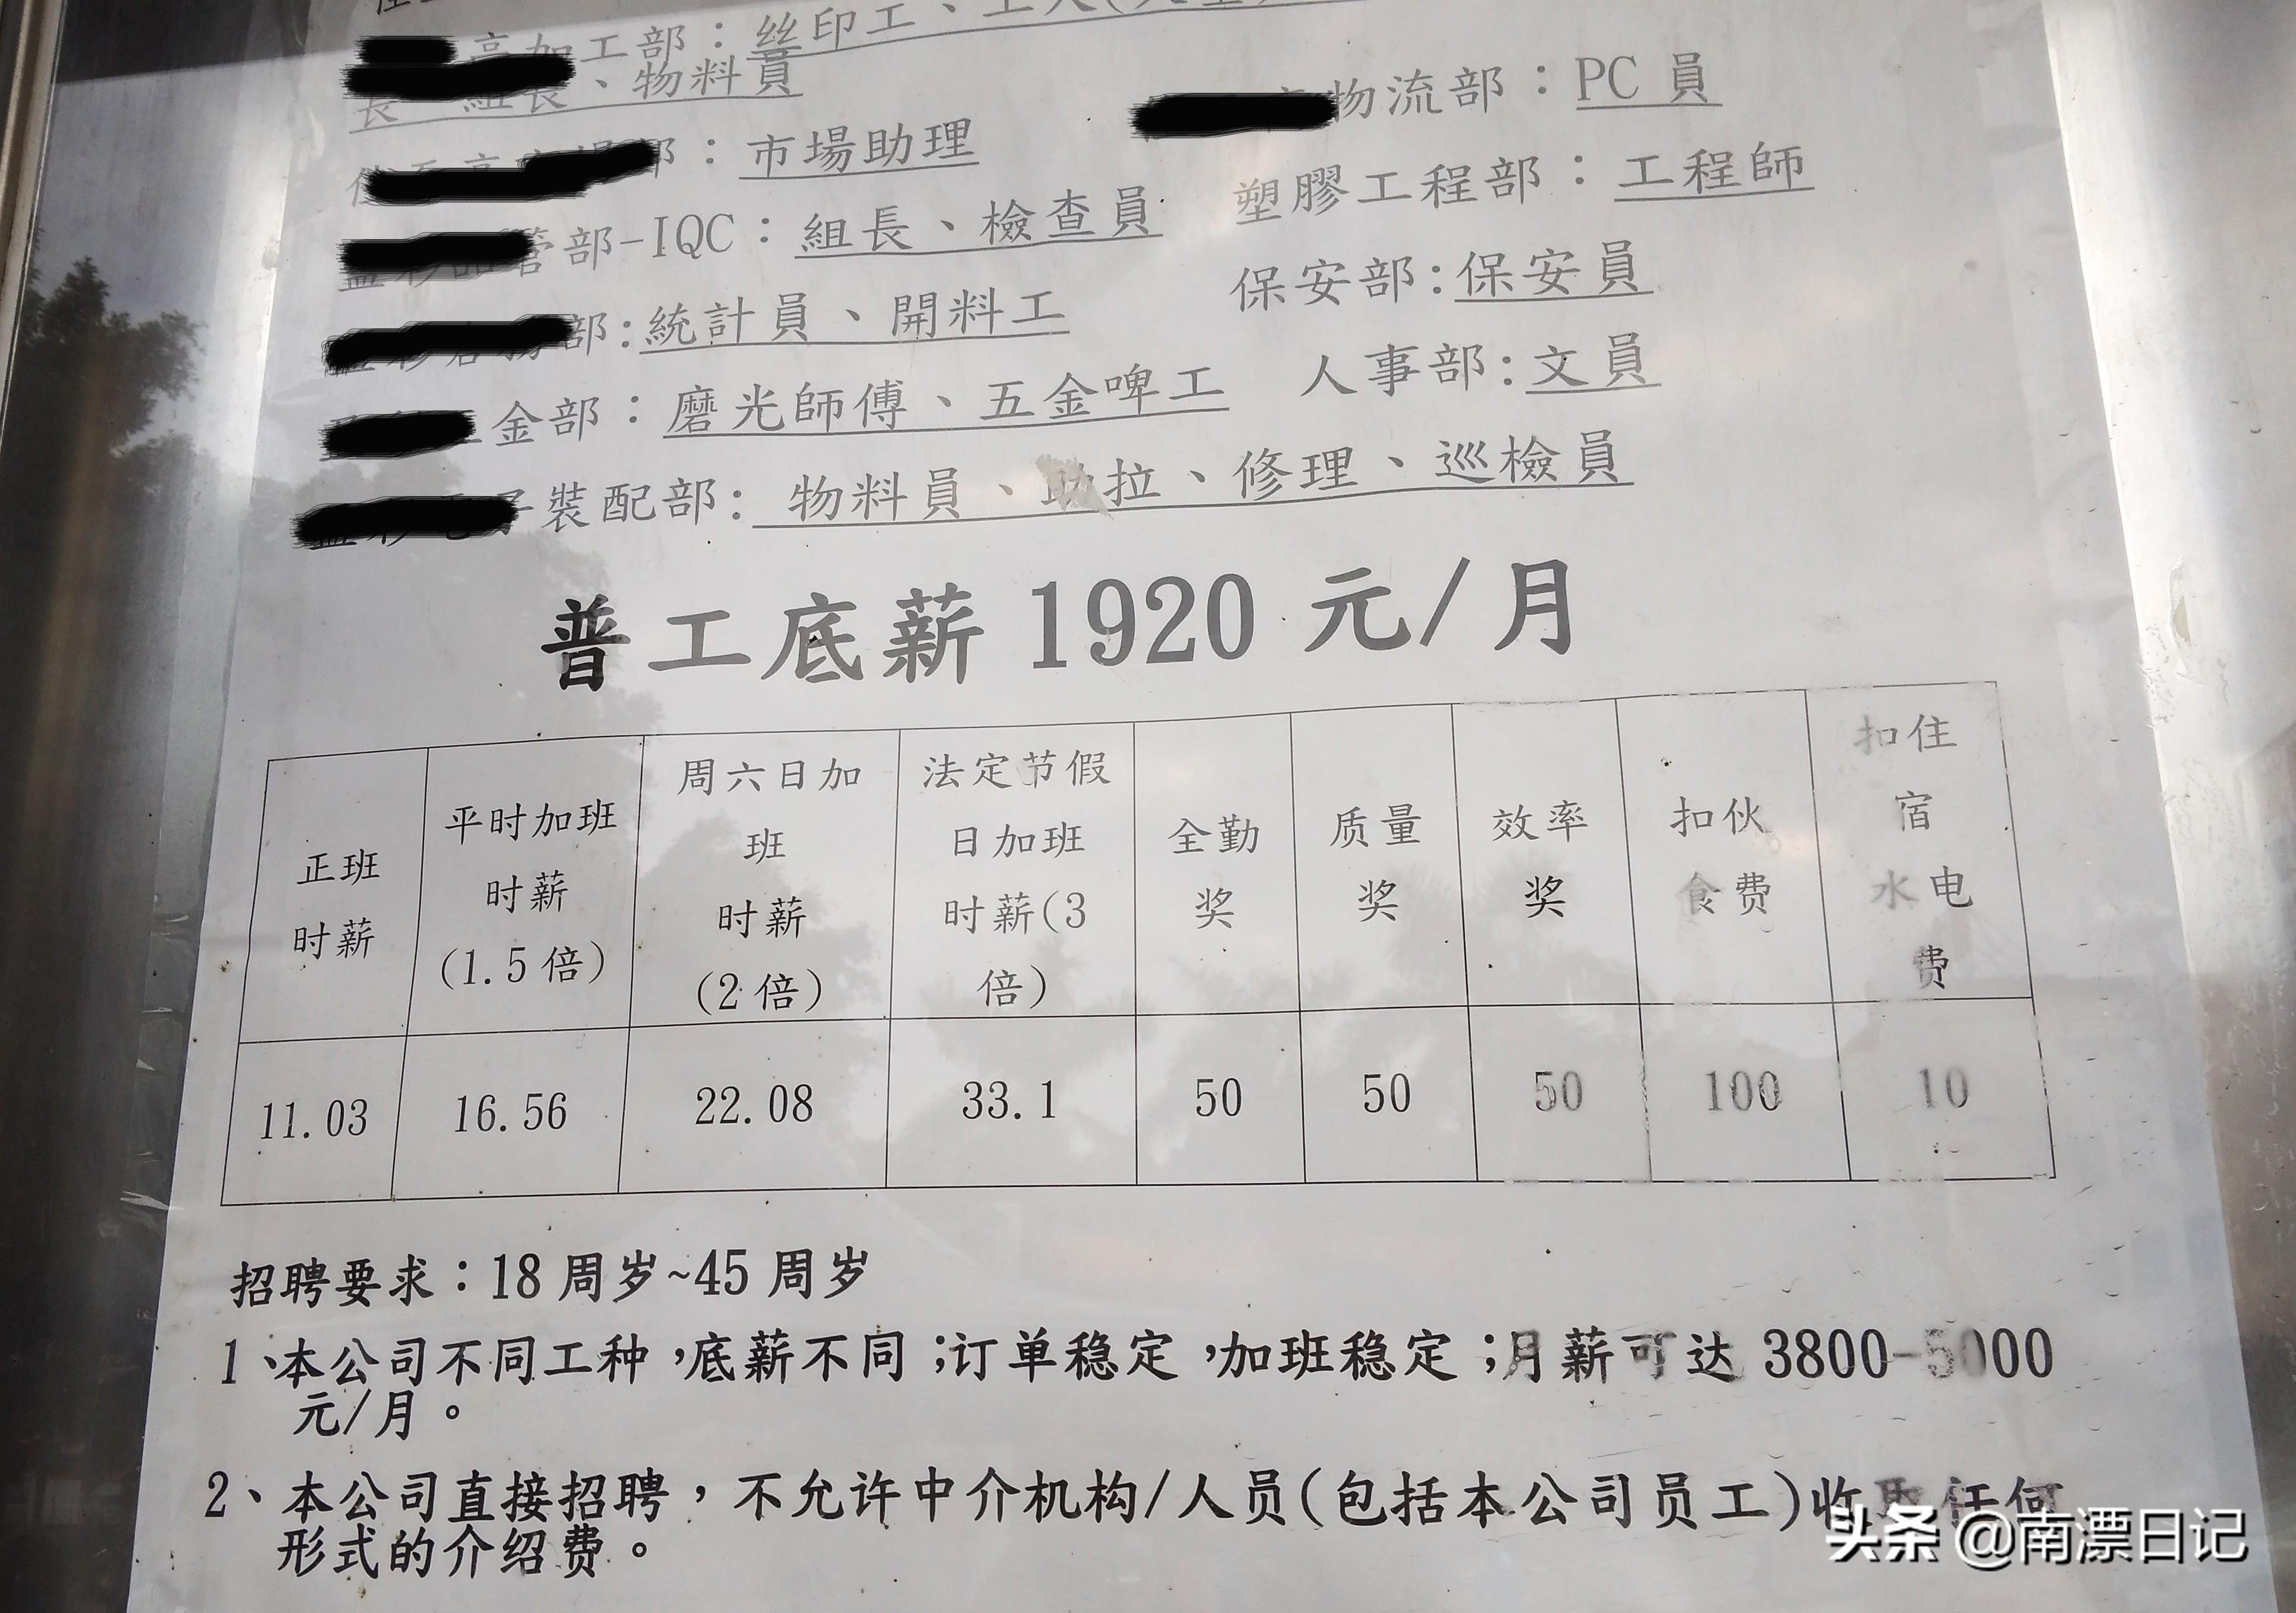 加工部：丝印工、工人
長、組長、物料員
物流部：PC 員
部：市場助理
塑膠工程部：工程師
管部-IQC：組長、檢查員
保安部:保安員
部:統計員、開料工
人事部:文員
金部：磨光師傅、五金啤工
子裝配部: 物料員、助拉、修理、巡檢員
普工底薪 1920 元/月
正班
时薪
平时加班
时薪
(1.5 倍)
周六日加
班
时薪
(2 倍)
法定节假
日加班
时薪(3
倍)
全勤
奖
质量
奖
效率
奖
扣伙
食费
扣住
宿
水电
费
11.03
16.56
22.08
33.1
50
50
50
100
10
招聘要求：18 周岁~45 周岁
1、本公司不同工种，底薪不同；订单稳定，加班稳定；月薪可达 3800-5000
元/月。
2、本公司直接招聘，不允许中介机构/人员(包括本公司员工)收取任何
形式的介绍费。
头条 @南漂日记